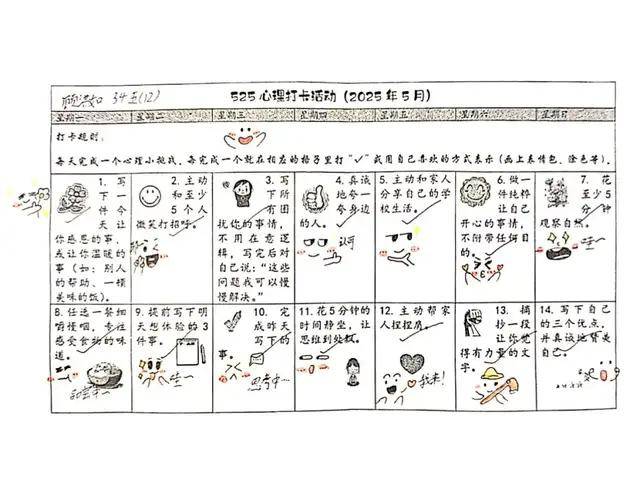 525 心理打卡活动（2025 年 5 月）
星期一 星期二 星期三 星期四 星期五 星期六 星期日
打卡规则：
每天完成一个心理小挑战，每完成一个就在相应的格子里打“✓”或用自己喜欢的方式表示（画上表情包、涂色等）。
1. 写
下一
件今
天让
你感恩的事、
或让你温暖的
事（如：别人
的帮助、一顿
美味的饭）。
2. 主动
和至少
5 个人
微笑打招呼。
3. 写
下所
有困
扰你的事情，
不用在意逻
辑，写完后对
自己说：“这些
问题我可以慢
慢解决。”
4. 真诚
地夸一
夸身边
的人。
认可
5. 主动和家人
分享自己的学
校生活。
6. 做一
件纯粹
让自己
开心的事情，
不附带任何目
的。
7. 花
至少 5
分钟
观察自然。
哇～
8. 任选一餐细
嚼慢咽，专注
感受食物的味
道。
9. 提前写下明
天想体验的 3
件事。
哇～
10. 完
成昨天
写下的
事。
思考中～
11. 花 5 分钟的
时间静坐，让
思维到处放。
12. 主动帮家
人捏捏肩。
我来！
13. 摘
抄一段
让你觉
得有力量的文
字。
14. 写下自己
的三个优点，
并真诚地赞美
自己。